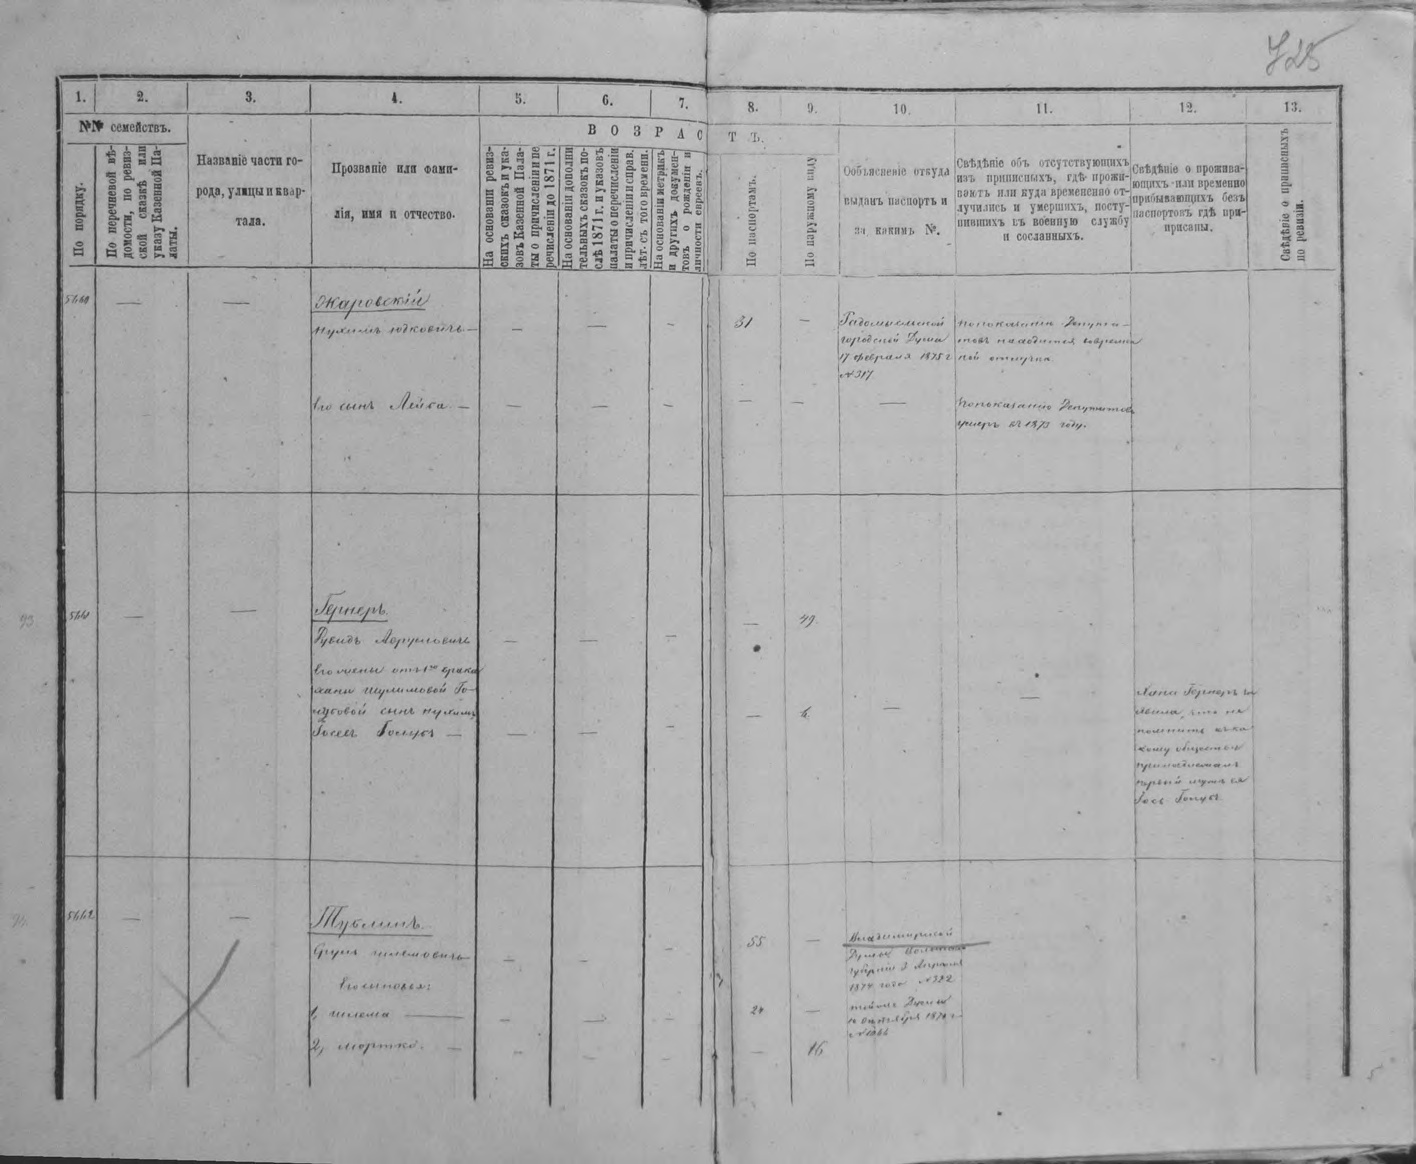 725
1. 2. 3. 4. 5. 6. 7. 8. 9. 10. 11. 12. 13.
№№ семействъ.
По порядку.
По перечневой вѣ-
домости, по ревиз-
ской сказкѣ или
указу Казенной Па-
латы.
Названіе части го-
рода, улицы и квар-
тала.
Прозваніе или фами-
лія, имя и отчество.
ВОЗРАСТЪ.
На основаніи ревиз-
скихъ сказокъ и ука-
зовъ Казенной Пала-
ты о причисленіи и пе
речисленіи до 1871 г.
На основаніи дополни
тельныхъ сказокъ по-
слѣ 1871 г. и указовъ
палаты о перечисленіи
и причисленіи и справ.
лѣт. съ того времени.
На основаніи метрикъ
и другихъ докумен-
товъ о рожденіи и
личности евреевъ.
По паспортамъ.
По наружному виду
Объясненіе откуда
выданъ паспортъ и
за какимъ №.
Свѣдѣніе объ отсутствующихъ
изъ приписныхъ, гдѣ прожи-
ваютъ или куда временно от-
лучились и умершихъ, посту-
пившихъ въ военную службу
и сосланныхъ.
Свѣдѣніе о прожива-
ющихъ или временно
прибывающихъ безъ
паспортовъ гдѣ при-
писаны.
Свѣдѣніе о приписныхъ
по ревизіи.
5660 — — Жаровскій
Нухимъ Юдковичъ — — — — 31 —
Радомысльской
городской Думы
17 февраля 1875 г
№ 317
По показанію Депута-
товъ находится во времен
ной отлучкѣ
Его сынъ Лейба — — — — — — —
По показанію Депутатовъ
умеръ въ 1873 году.
5661 — — Гернеръ
Дувидъ Абрумовичъ — — — — 49
Его жены отъ 1го брака
Ханы Шулимовой Го-
лубовой сынъ Нухимъ
Іосель Голубъ — — — — — 6 — —
Хана Гернеръ за
явила, что не
помнитъ къ ка
кому обществу
принадлежалъ
первый мужъ ея
Іось Голубъ
5662 — — Тублинъ
Срулъ Шлемовичъ — — — 55 —
Владимирской
Думы Волынск
губерніи 3 Апреля
1874 года № 322
Его сыновья:
1, Шлема — — — — 24 —
тойже Думы
10 Октября 1874 г
№ 1066
2, Мортко. — — — — — 16